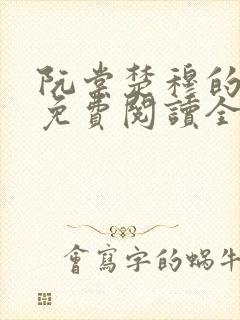 阮棠楚穆的
免費閱讀全
會寫字的蝸牛